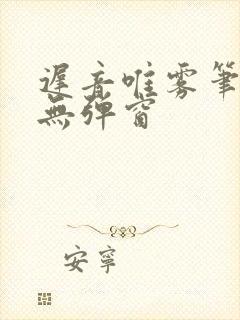 遲音唯雾筆
無彈窗
安寧